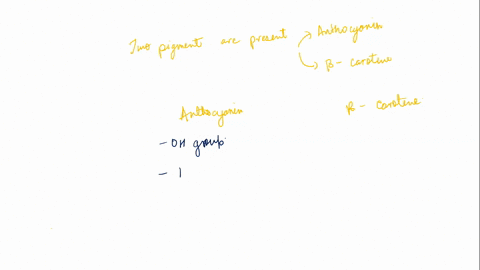 Two pigments are present → Anthocyanin
↳ β - carotene
Anthocyanin β - carotene
- OH group
- 1